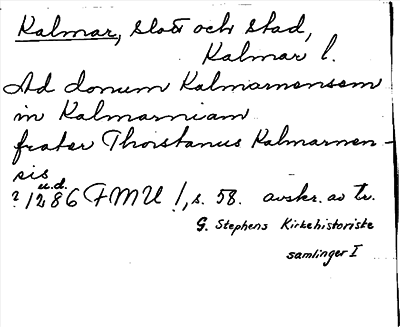 Kalmar, slott och stad,
Kalmar l.
Ad donum Kalmarnensem
in Kalmarniam
frater Thorstanus Kalmarnen-
sis
u.d.
? 1286 FMU I, s. 58. avskr. av tr.
G. Stephens Kirkehistoriske
samlinger I